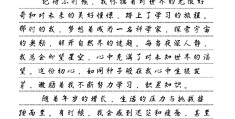 记得小时候，我怀揣着对世界的无限好
奇和对未来的美好憧憬，踏上了学习的旅程。
那时的我，梦想着成为一名科学家，探索宇宙
的奥秘，解开自然界的谜题。每当夜深人静，
我总会仰望星空，心中充满了对未知世界的渴
望。这份初心，如同种子般在我心中生根发
芽，激励着我不断努力学习，积累知识。
随着年岁的增长，生活的压力与挑战接
踵而至，有时候，我会感到迷茫和疲惫，甚